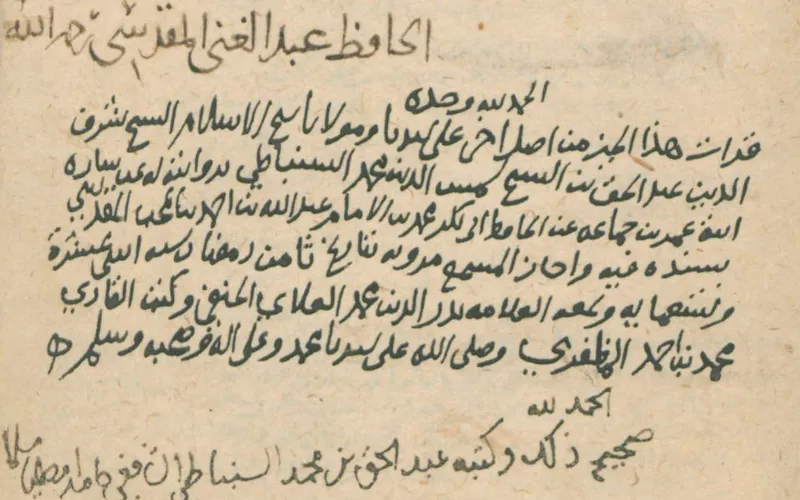 الحافظ عبد الغني المقدسي رحمه الله
الحمد لله وحده
قرات هذا الجزء من اصل اخر على سيدنا ومولانا شيخ الاسلام الشيخ شرف
الدين عبد الحق بن الشيخ شمس الدين محمد السنباطي بروايته له عن ساره
ابنة عمر بن جماعه عن الحافظ ابي بكر محمد بن الامام عبد الله بن احمد بن المحب المقدسي
بسنده فيه واجاز المسمع مرويه بتاريخ ثامن رمضان سنه اثني عشرة
وتسعمايه وسمعه العلامه بدر الدين محمد العلاي الحنفي وكتب القاري
محمد بن احمد المظفري وصلى الله على سيدنا محمد وعلى اله وصحبه وسلم
الحمد لله
صحيح ذلك وكتبه عبد الحق بن محمد السنباطي الشافعي حامدا مصليا مسلما